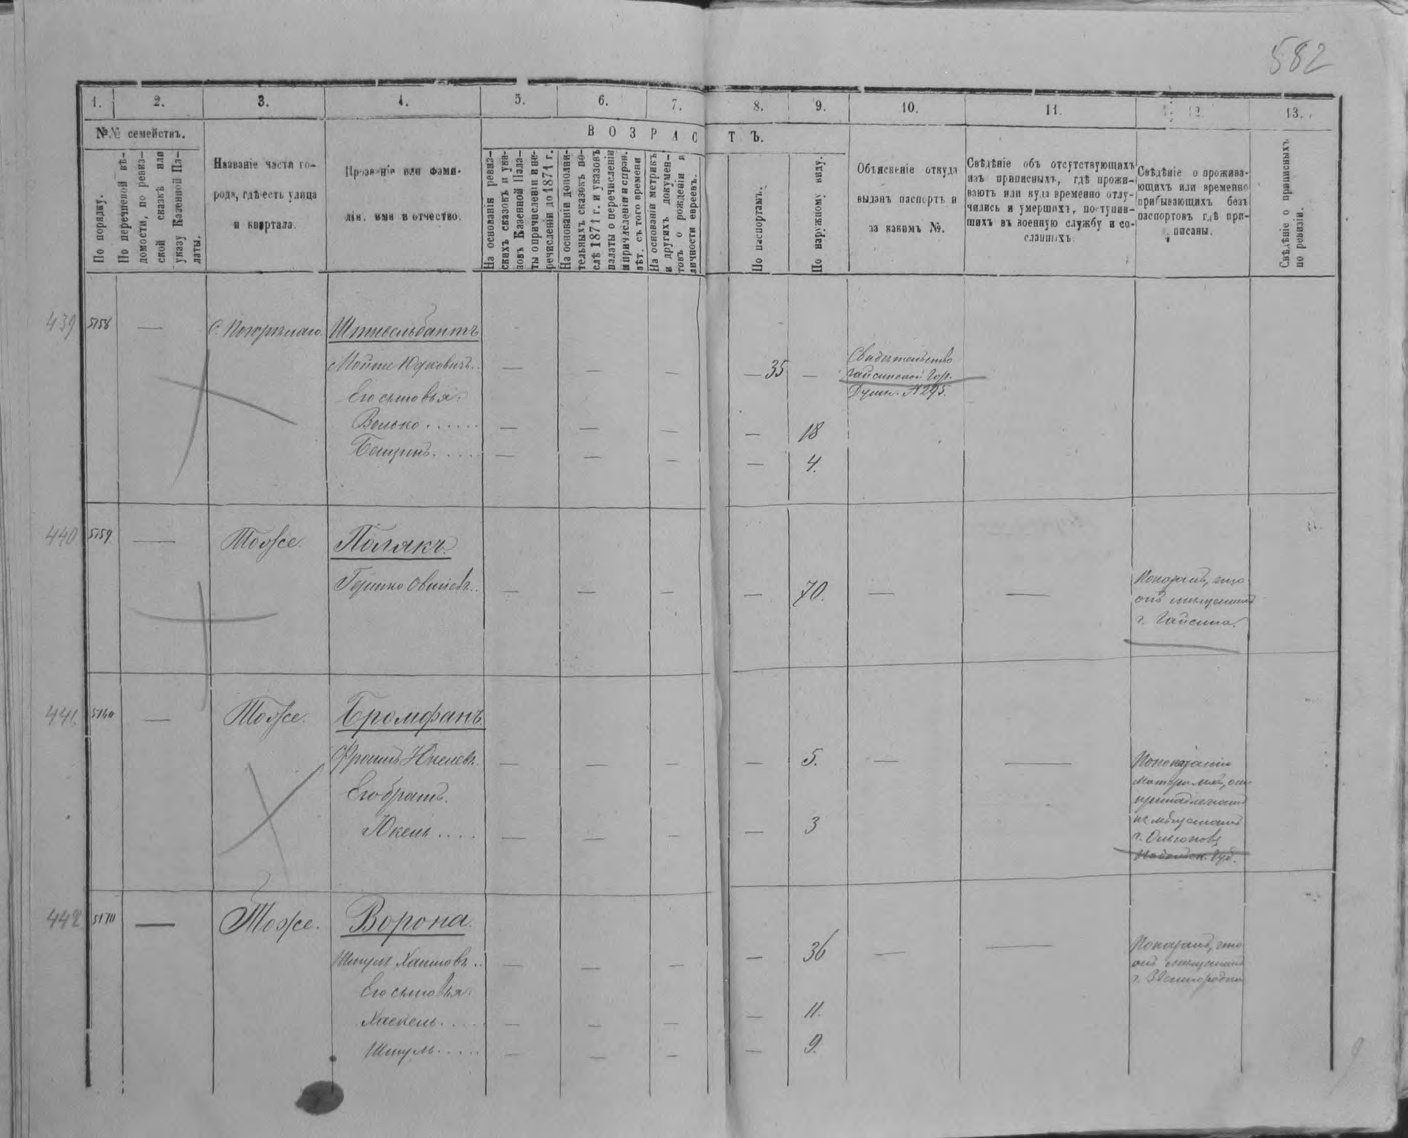 582
1. 2. 3. 4. 5. 6. 7. 8. 9. 10. 11. 12. 13.
№№ семействъ.
По порядку.
По перечневой вѣ-
домости, по ревиз-
ской сказкѣ или
указу Казенной Па-
латы.
Названіе части го-
рода, гдѣ есть улица
и квартала.
Прозваніе или фами-
лія, имя и отчество.
ВОЗРАСТЪ.
На основаніи ревиз-
скихъ сказокъ и ука-
зовъ Казенной Пала-
ты о причисленіи и пе-
речисленіи до 1871 г.
На основаніи дополни-
тельныхъ сказокъ по-
слѣ 1871 г. и указовъ
палаты о перечисленіи
и причисленіи и справ.
лѣт. съ того времени
На основаніи метрикъ
и другихъ докумен-
товъ о рожденіи и
личности евреевъ.
По паспортамъ.
По наружному виду.
Объясненіе откуда
выданъ паспортъ и
за какимъ №.
Свѣдѣніе объ отсутствующихъ
изъ приписныхъ, гдѣ прожи-
ваютъ или куда временно отлу-
чились и умершихъ, поступив-
шихъ въ военную службу и со-
сланныхъ.
Свѣдѣніе о прожива-
ющихъ или временно
прибывающихъ безъ
паспортовъ гдѣ при-
писаны.
Свѣдѣніе о приписныхъ
по ревизіи.
439 5158 —
Мошко Юдковичъ — — — — 35 —
Свидѣтельство
Гайсинской Гор.
Думы № 295.
Его сыновья:
Волько — — — — 18
— — — — 4.
440 5159 — Тоже. Полякъ.
— — — — 70. — —
Показалъ, что
онъ мѣщанинъ
г. Гайсина.
441 5160 — Тоже. Бромфанъ.
Фроимъ Юкелевъ — — — — 5. — —
По показанію
матери
принадлежатъ
къ мѣщанамъ
Его братъ.
Юкель — — — — 3
442 — Тоже. Ворона.
Шмуль Хаимовъ — — — — 36 — —
Показалъ, что
онъ мѣщанинъ
г. Звенигородки
Его сыновья:
Хаскель — — — — 11.
Шмуль — — — — 9.